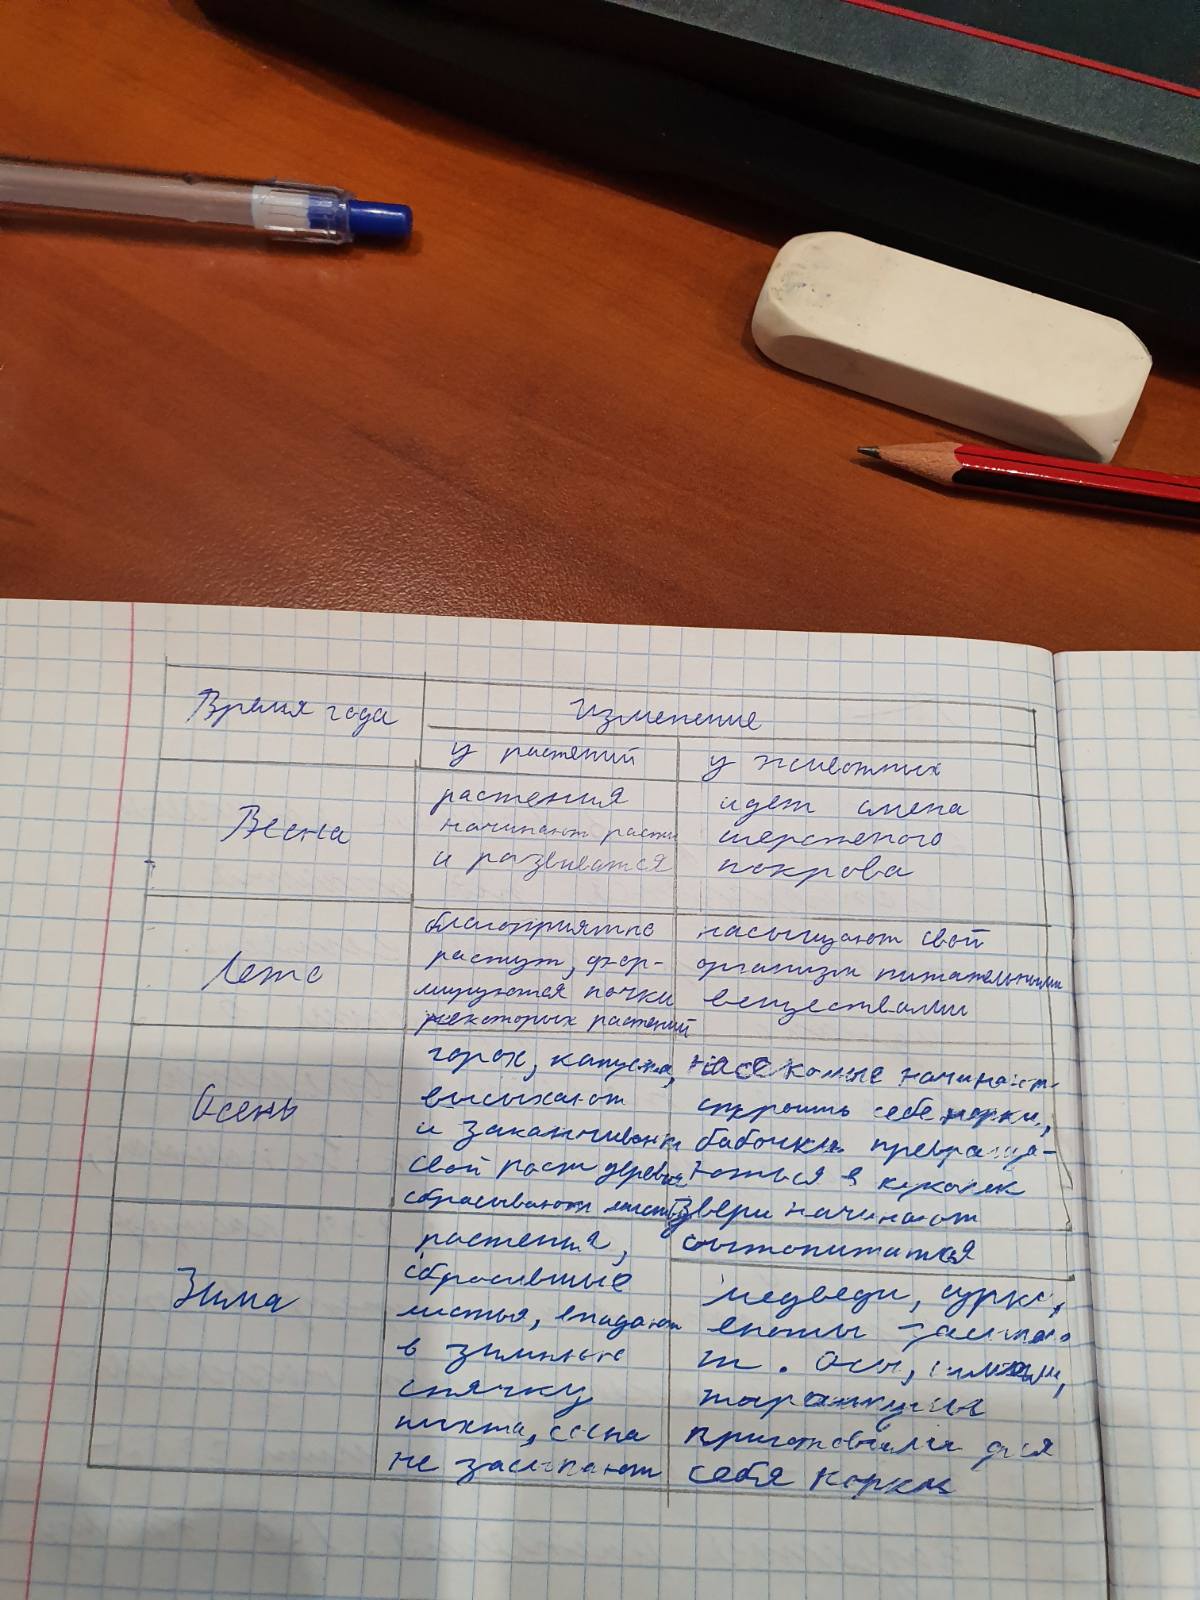 Время года
Изменение
у растений
у животных
Весна
растения
начинают расти
и развиватся
идет смена
шерстеного
покрова
Лето
благоприятно
растут, фор-
мируются почки
некоторых растений
насыщают свой
организм питательными
веществами
Осень
горох, капуста,
высыхают
и заканчивают
свой рост деревья
сбрасывают листву
насекомые начинают
строить себе норки,
бабочки превраща-
ються в куколок
Звери начинают
Зима
растения,
сбросившие
листья, впадают
в зимнюю
спячку
пихта, сосна
не засыпают
медведи, сурки,
еноты засыпаю
т. Осы,
приготовили для
себя норки